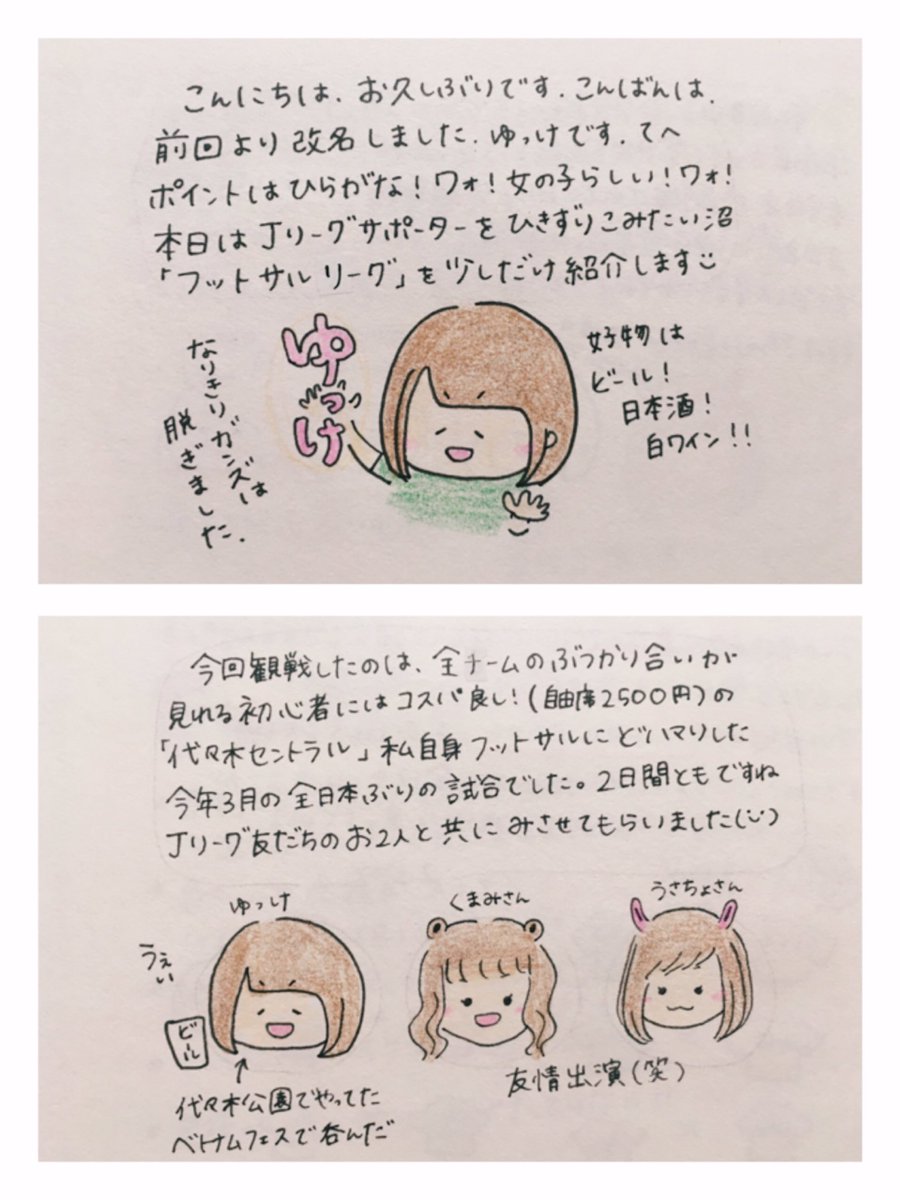 こんにちは、お久しぶりです。こんばんは。
前回より改名しました。ゆっけです。てへ
ポイントはひらがな！ワォ！女の子らしい！ワォ！
本日はJリーグサポーターをひきずりこみたい沼
「フットサルリーグ」を少しだけ紹介します
なりきりガンズは
脱ぎました。
ゆっけ
好物は
ビール！
日本酒！
白ワイン！！
今回観戦したのは、全チームのぶつかり合いが
見れる初心者にはコスパ良し！(自由席2500円)の
「代々木セントラル」私自身フットサルにどハマりした
今年3月の全日本ぶりの試合でした。2日間ともですね
Jリーグ友だちのお2人と共にみさせてもらいました(¨)
ゆっけ
くまみさん
うさちょさん
うぇい
ビール
代々木公園でやってた
ベトナムフェスで呑んだ
友情出演(笑)